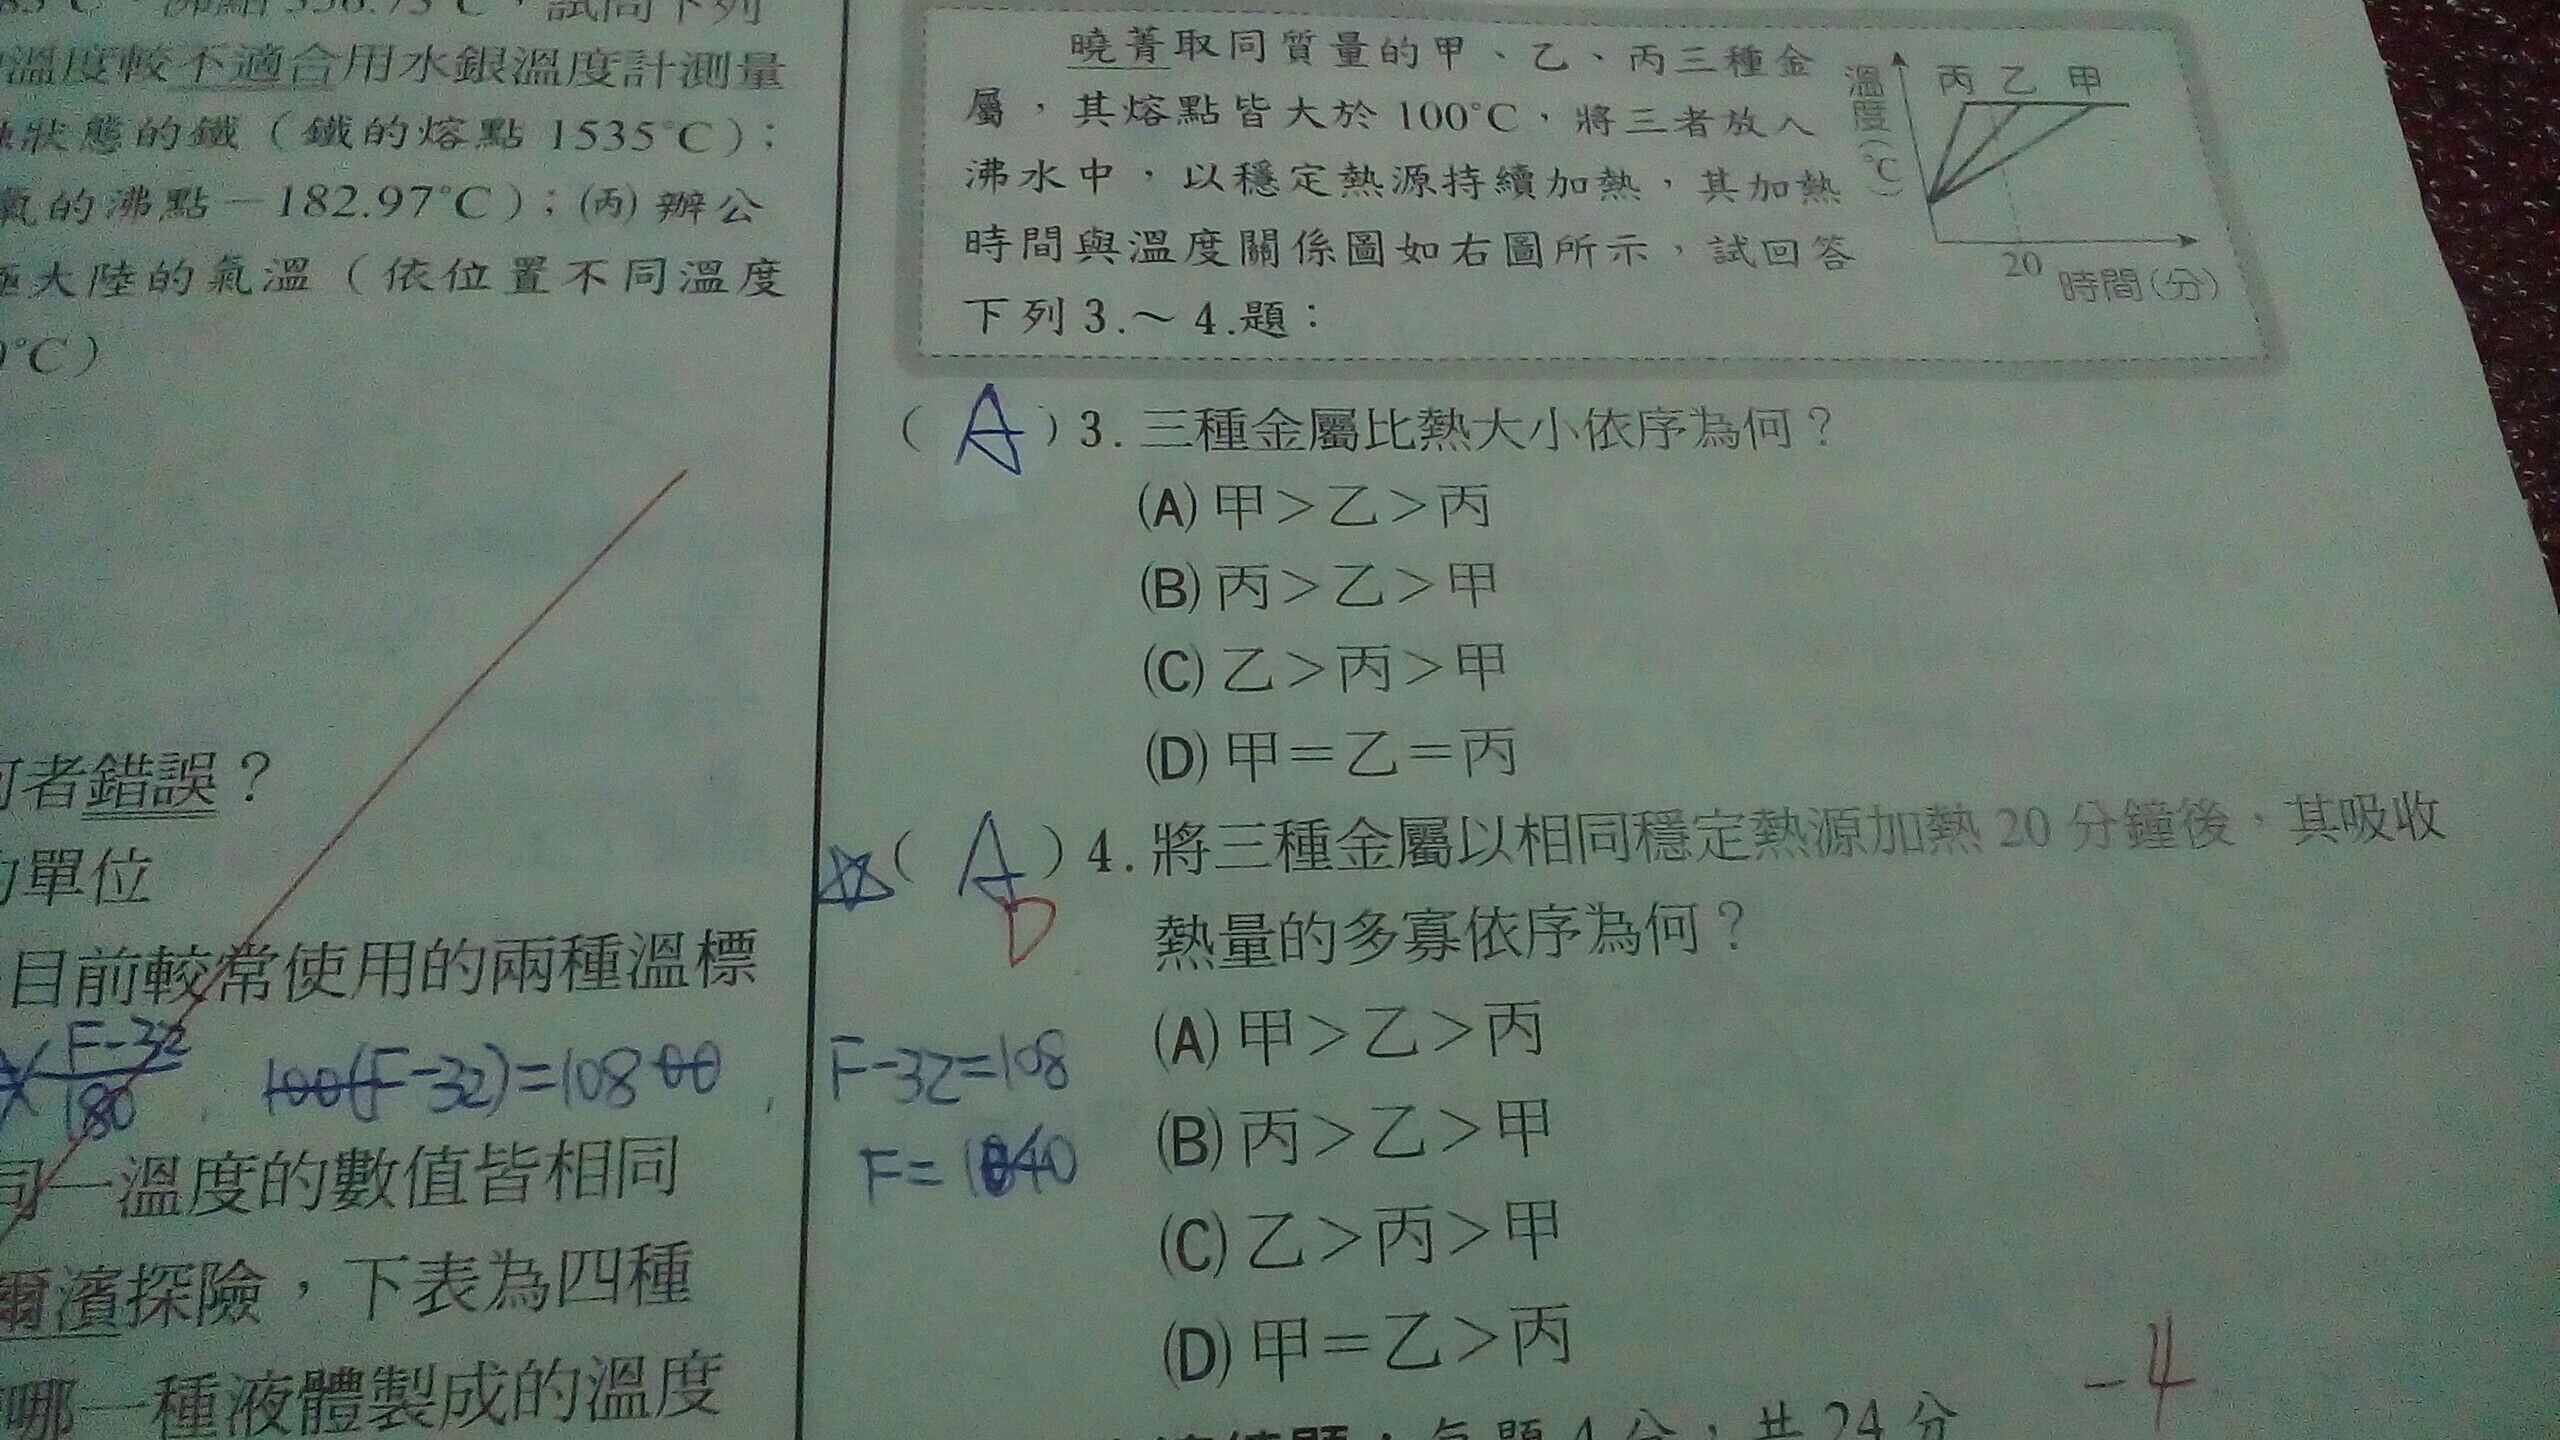 沸點356.73°C，試問下列
溫度較不適合用水銀溫度計測量
狀態的鐵（鐵的熔點1535°C）；
氧的沸點－182.97°C）；(丙)辦公
極大陸的氣溫（依位置不同溫度
0°C）
何者錯誤？
的單位
目前較常使用的兩種溫標
F-32
180
100(F-32)=10800
同一溫度的數值皆相同
爾濱探險，下表為四種
哪一種液體製成的溫度
曉菁取同質量的甲、乙、丙三種金
屬，其熔點皆大於100°C，將三者放入
沸水中，以穩定熱源持續加熱，其加熱
時間與溫度關係圖如右圖所示，試回答
下列3.～4.題：
溫度(°C)
丙 乙 甲
20
時間(分)
（A）3.三種金屬比熱大小依序為何？
(A)甲＞乙＞丙
(B)丙＞乙＞甲
(C)乙＞丙＞甲
(D)甲＝乙＝丙
☆（A）4.將三種金屬以相同穩定熱源加熱20分鐘後，其吸收
D
熱量的多寡依序為何？
(A)甲＞乙＞丙
F-32=108
(B)丙＞乙＞甲
(C)乙＞丙＞甲
(D)甲＝乙＞丙
-4
每題4分，共24分